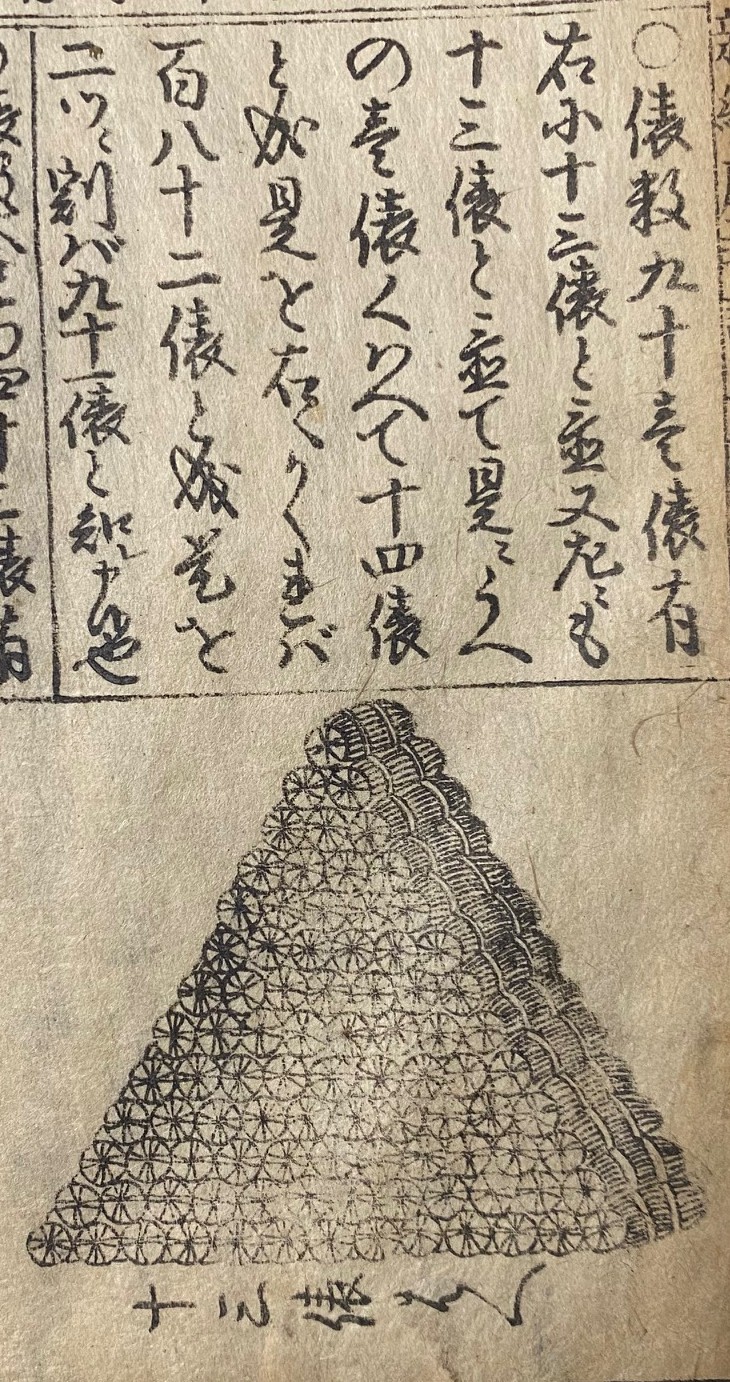 〇俵数九十壱俵有
右に十三俵と並又左ニも
十三俵と並て是ニうへ
の壱俵くわへて十四俵
と成是を右へかくれバ
百八十二俵と成是を
二ツニ割バ九十一俵と知レ申也
十三俵